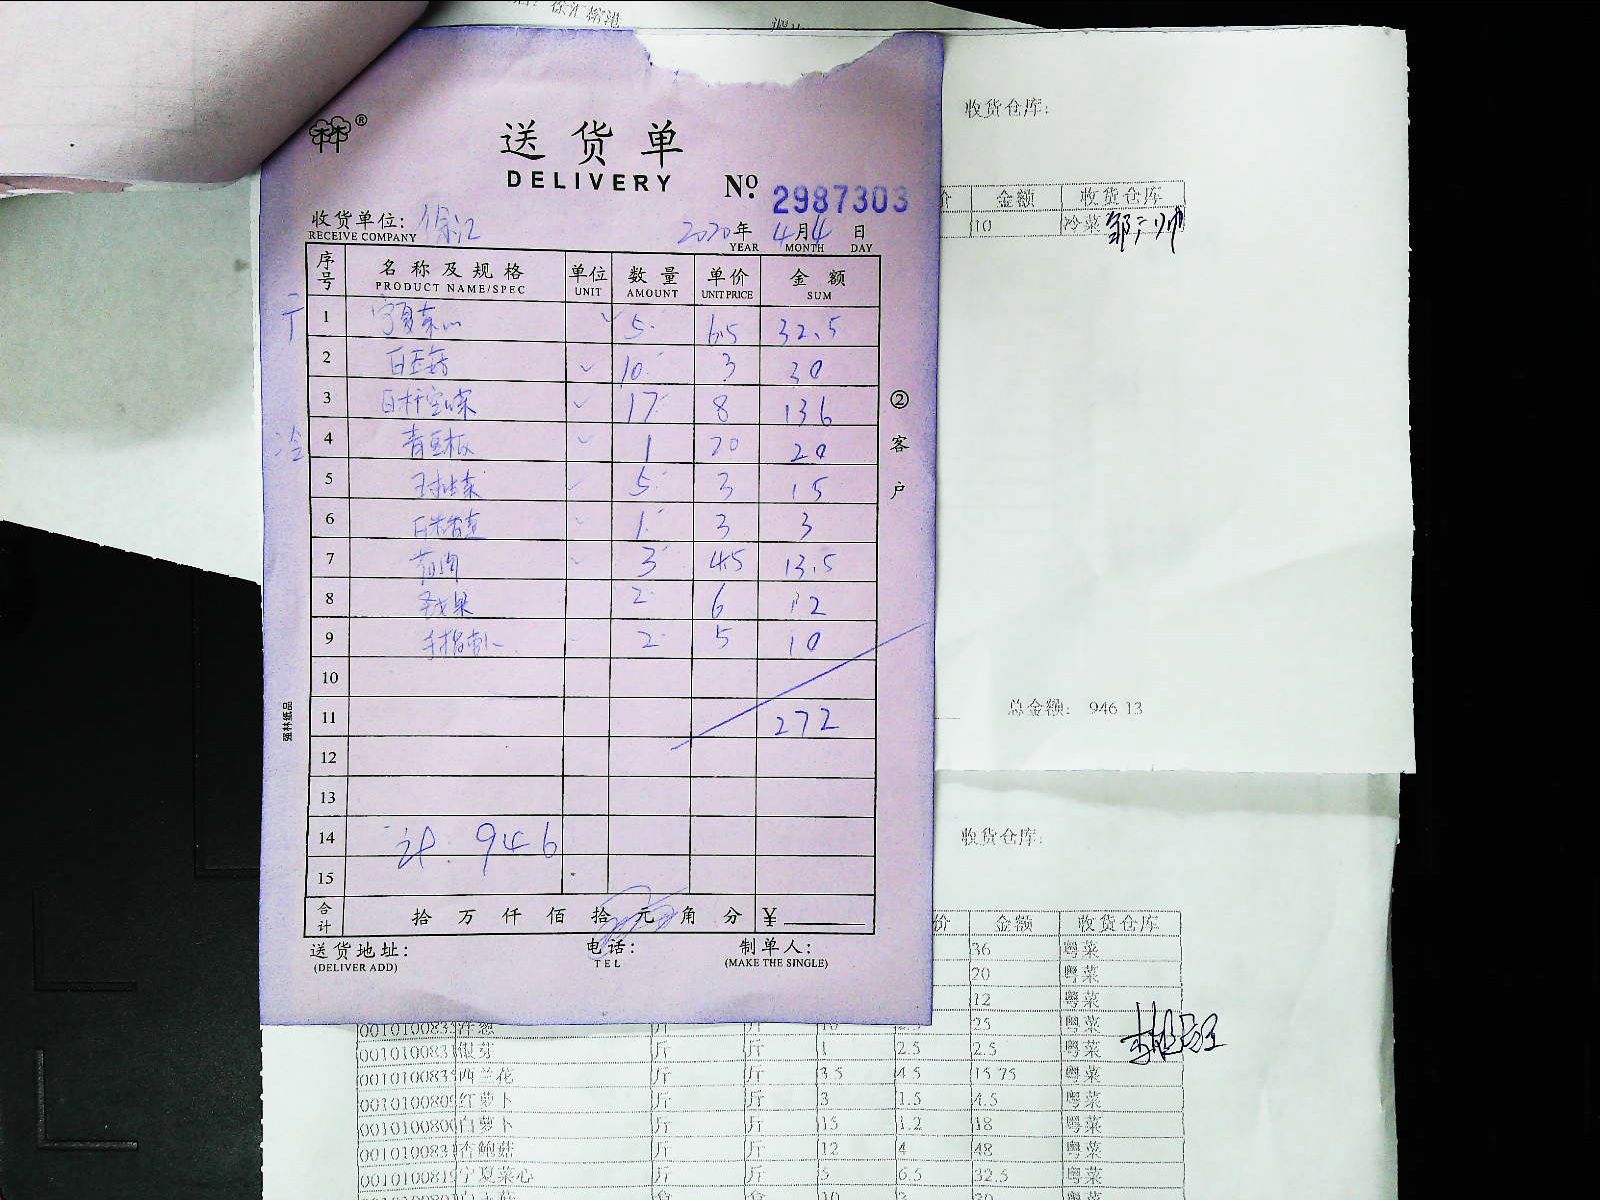 徐汇
送货单
DELIVERY
№ 2987303
收货单位: 徐汇
RECEIVE COMPANY
2020年 4月4日
YEAR MONTH DAY
序号 名称及规格 单位 数量 单价 金额
PRODUCT NAME/SPEC UNIT AMOUNT UNIT PRICE SUM
1 宁夏菜心 5 6.5 32.5
2 白玉菇 10 3 30
3 白杆空心菜 17 8 136
冷
4 青豆板 1 20 20
5 5 3 15
6 1 3 3
7 3 4.5 13.5
8 圣女果 2 6 12
9 2 5 10
10
11 272
12
13
14 计 946
15
合计 拾 万 仟 佰 拾 元 角 分 ¥
送货地址: 电话: 制单人:
(DELIVER ADD) TEL (MAKE THE SINGLE)
②客户
强林纸品
收货仓库:
价 金额 收货仓库
10 冷菜
总金额: 946.13
收货仓库:
价 金额 收货仓库
36 粤菜
20 粤菜
12 粤菜
洋葱 斤 斤 10 2.5 25 粤菜
银芽 斤 斤 1 2.5 2.5 粤菜
西兰花 斤 斤 3.5 4.5 15.75 粤菜
红萝卜 斤 斤 3 1.5 4.5 粤菜
白萝卜 斤 斤 15 1.2 18 粤菜
杏鲍菇 斤 斤 12 4 48 粤菜
宁夏菜心 斤 斤 5 6.5 32.5 粤菜